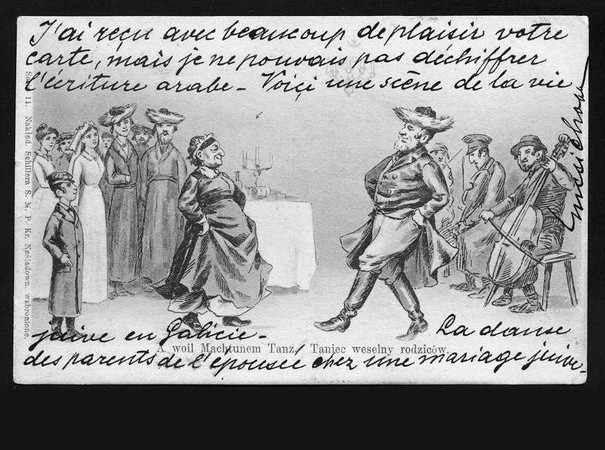 J'ai reçu avec beaucoup de plaisir votre
carte, mais je ne pouvais pas déchiffrer
l'écriture arabe - Voici une scène de la vie
juive en Galicie -
La danse
des parents de l'épousée chez une mariage juive.
A woil Machtunem Tanz. Taniec weselny rodziców.
11. Nakład. Schillera S. M. P. Kr. Naśladown. wzbronione.